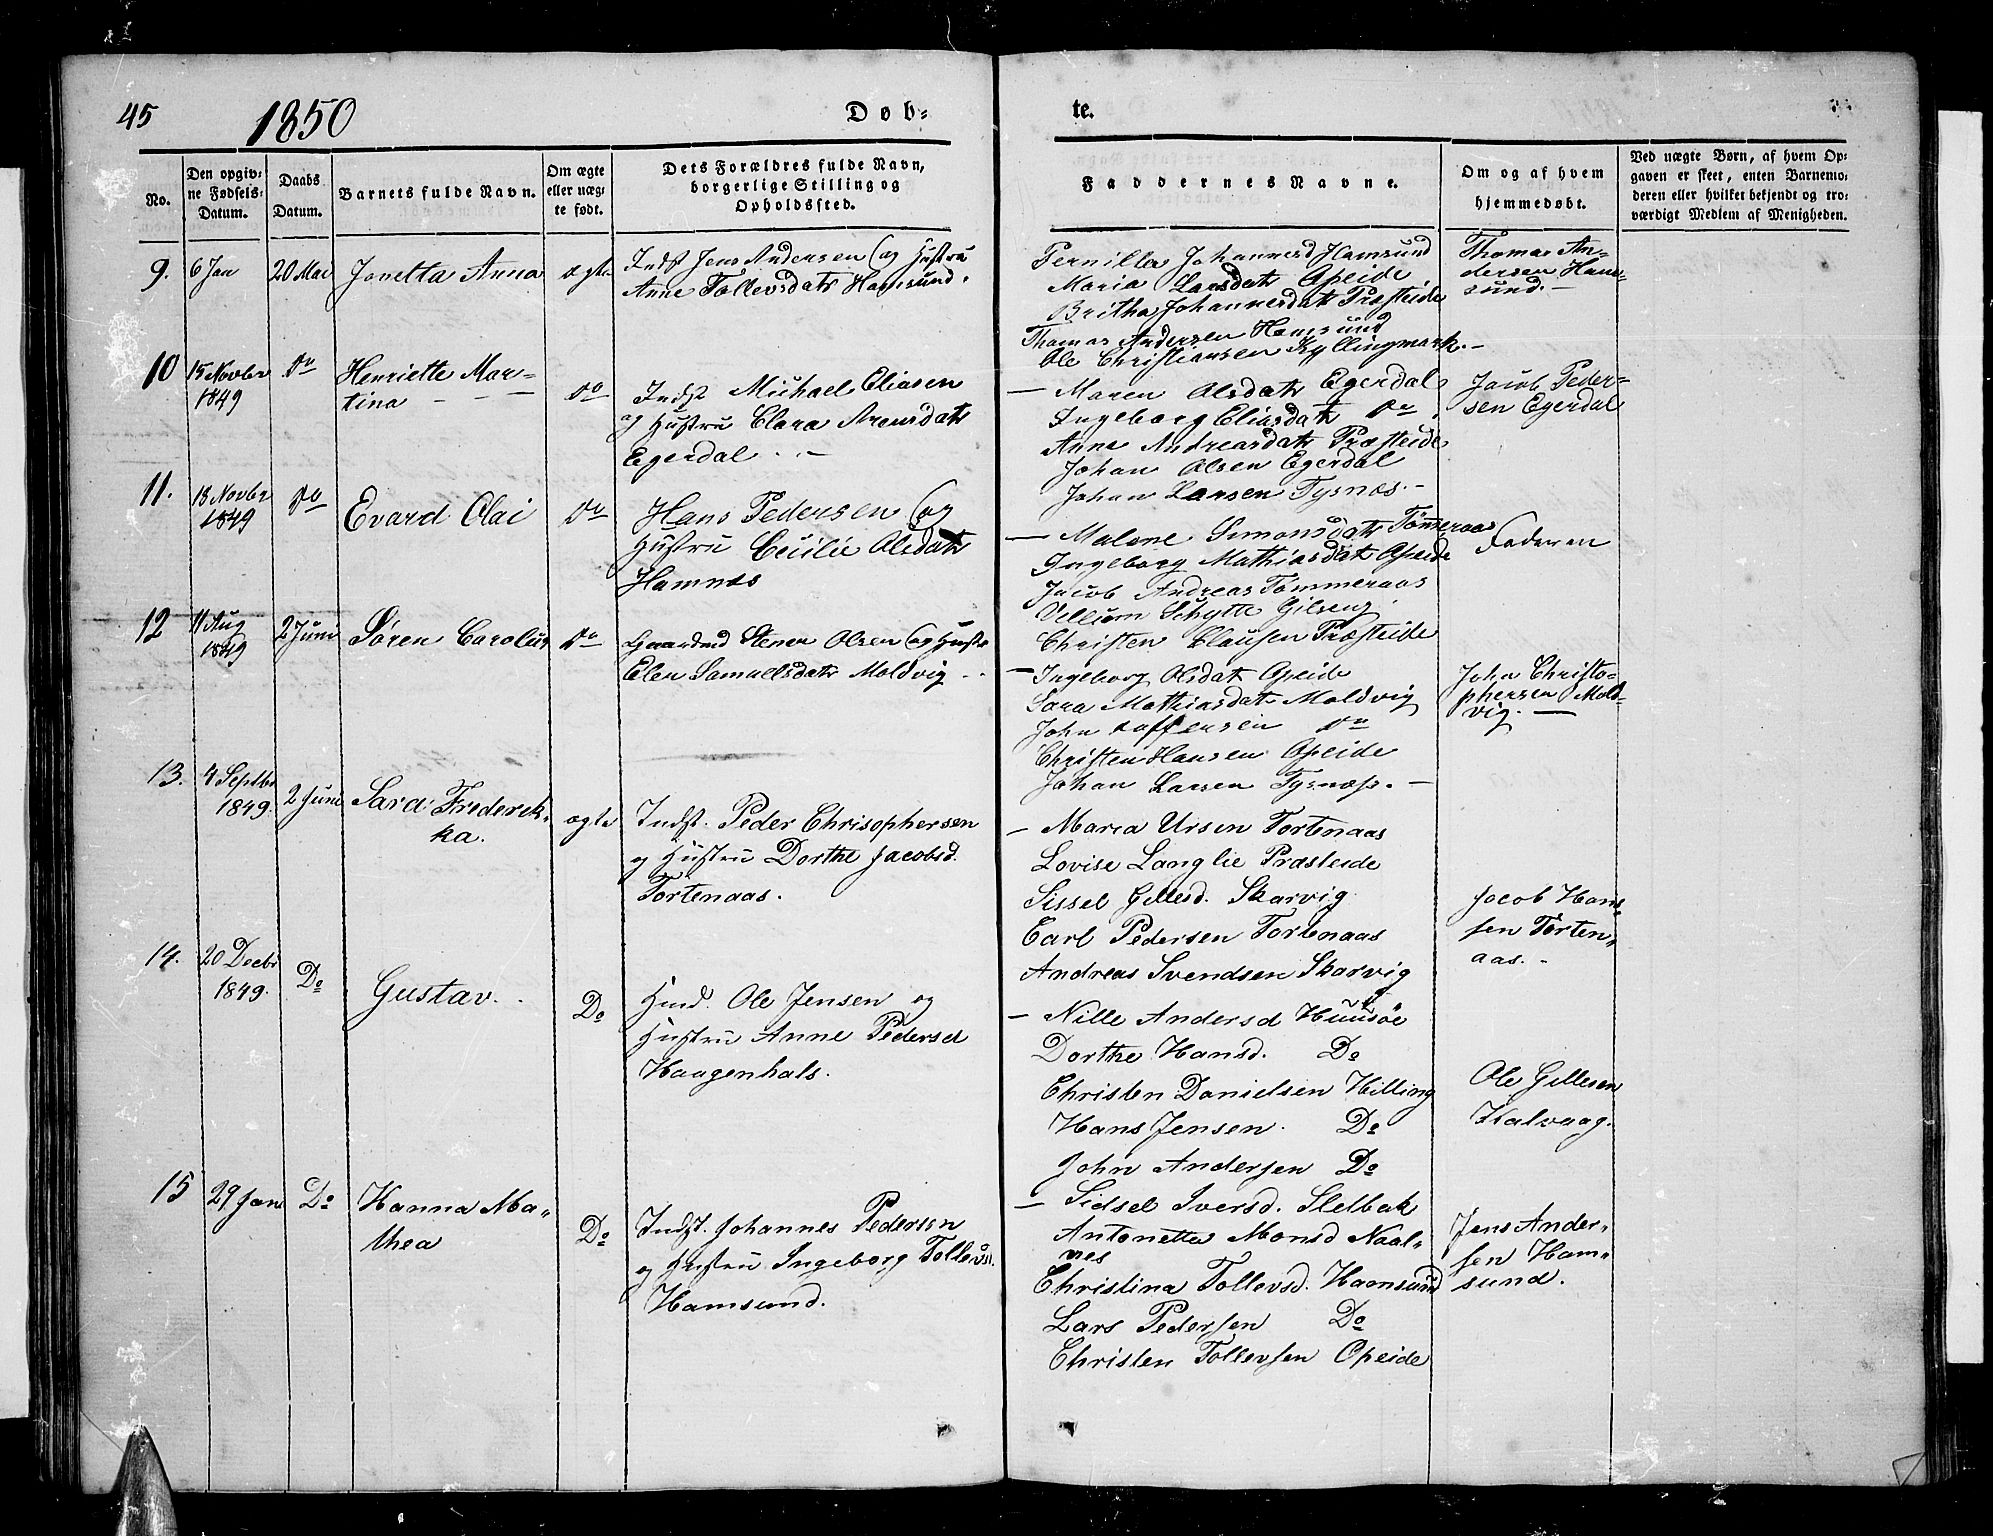 45
1850
Døb-
te.
No.
Den opgiv-
ne Fødsels-
Datum.
Daabs
Datum.
Barnets fulde Navn.
Om ægte
eller uæg-
te født.
Dets Forældres fulde Navn,
borgerlige Stilling og
Opholdssted.
Faddernes Navne.
Om og af hvem
hjemmedøbt.
Ved uægte Børn, af hvem Op-
gaven er skeet, enten Barnemo-
deren eller hvilket bekjendt og tro-
værdigt Medlem af Menigheden.
9. 6 Jan 20 Mai Jonetta Anna ægte
Indst Jens Andersen og Hustru
Anne Tollevsdatr Hamsund.
Pernilla Johannesd Hamsund
Maria Larsdatr Opeide
Britha Johannesdatr Præsteide
Thomas Andersen Hamsund
Ole Christiansen Kyllingmark.-
Thomas An-
dersen Ham-
sund.-
10 15 Novbr
1849
Do
Henriette Mar-
tina - - -
Do
Indst Michael Eliasen
og Hustru Clara Arensdatr
Egerdal . -
- Maren Olsdatr Egerdal
Ingeborg Eliasdatr Do
Anne Andreasdatr Præsteide
Johan Olsen Egerdal
Johan Larsen Tysnæs.-
Jacob Peder-
sen Egerdal
11. 18 Novbr
1849
Do
Evard Olai
Do
Hans Pedersen og
Hustru Cecilie Olsdatr
Hamnæs
- Malene Simonsdatr Tømmeraas
Ingeborg Mathiasdatr Opeide
Jacob Andreas Tømmeraas
Vellum Schytte
Christen Clausen Præsteide
Faderen
12 11 Aug
1849
2 Juni
Søren Carolus
Do
Gaardmd Stener Olsen og Hustr
Elen Samuelsdatr Moldvig - .
- Ingeborg Olsdatr Opeide
Sara Mathiasdatr Moldvig
John Do
Christen Hansen Opeide
Johan Larsen Tysnæs. -
John Christo-
phersen Mold-
vig. -
13. 4 Septbr
1849.
2 Juni
Sara Frederik-
ka.
ægte
Indst. Peder Chrisophersen
og Hustru Dorthe Jacobsd.
Tortenaas.
- Maria Ursin Tortenaas
Lovise Langlie Præsteide
Sissel Gellesd. Skarvig
Carl Pedersen Tortenaas
Andreas Svendsen Skarvig
Jacob Han-
sen Torten-
aas. -
14. 20 Decbr
1849.
Do
Gustav. .
Do
Huusmd. Ole Jensen og
Hustru Anne Pedersd
Haagenhals.
- Nille Andersd Huusøe
Dorthe Hansd. Do
Christen Danielsen Hilling
Hans Jensen. Do
John Andersen Do
Ole Gellesen
Kalvaag.
15 29 Jan
Do
Hanna Ma-
thea
Do
Indst. Johannes Pedersen
og Hustru Ingeborg Tollevsd.
Hamsund.
- Sidsel Iversd. Slelbak
Antonetta Monsd Naal-
næs
Christina Tollevsd. Hamsund
Lars Pedersen Do
Christen Tollevsen Opeide
Jens Ander-
sen Ham-
sund.